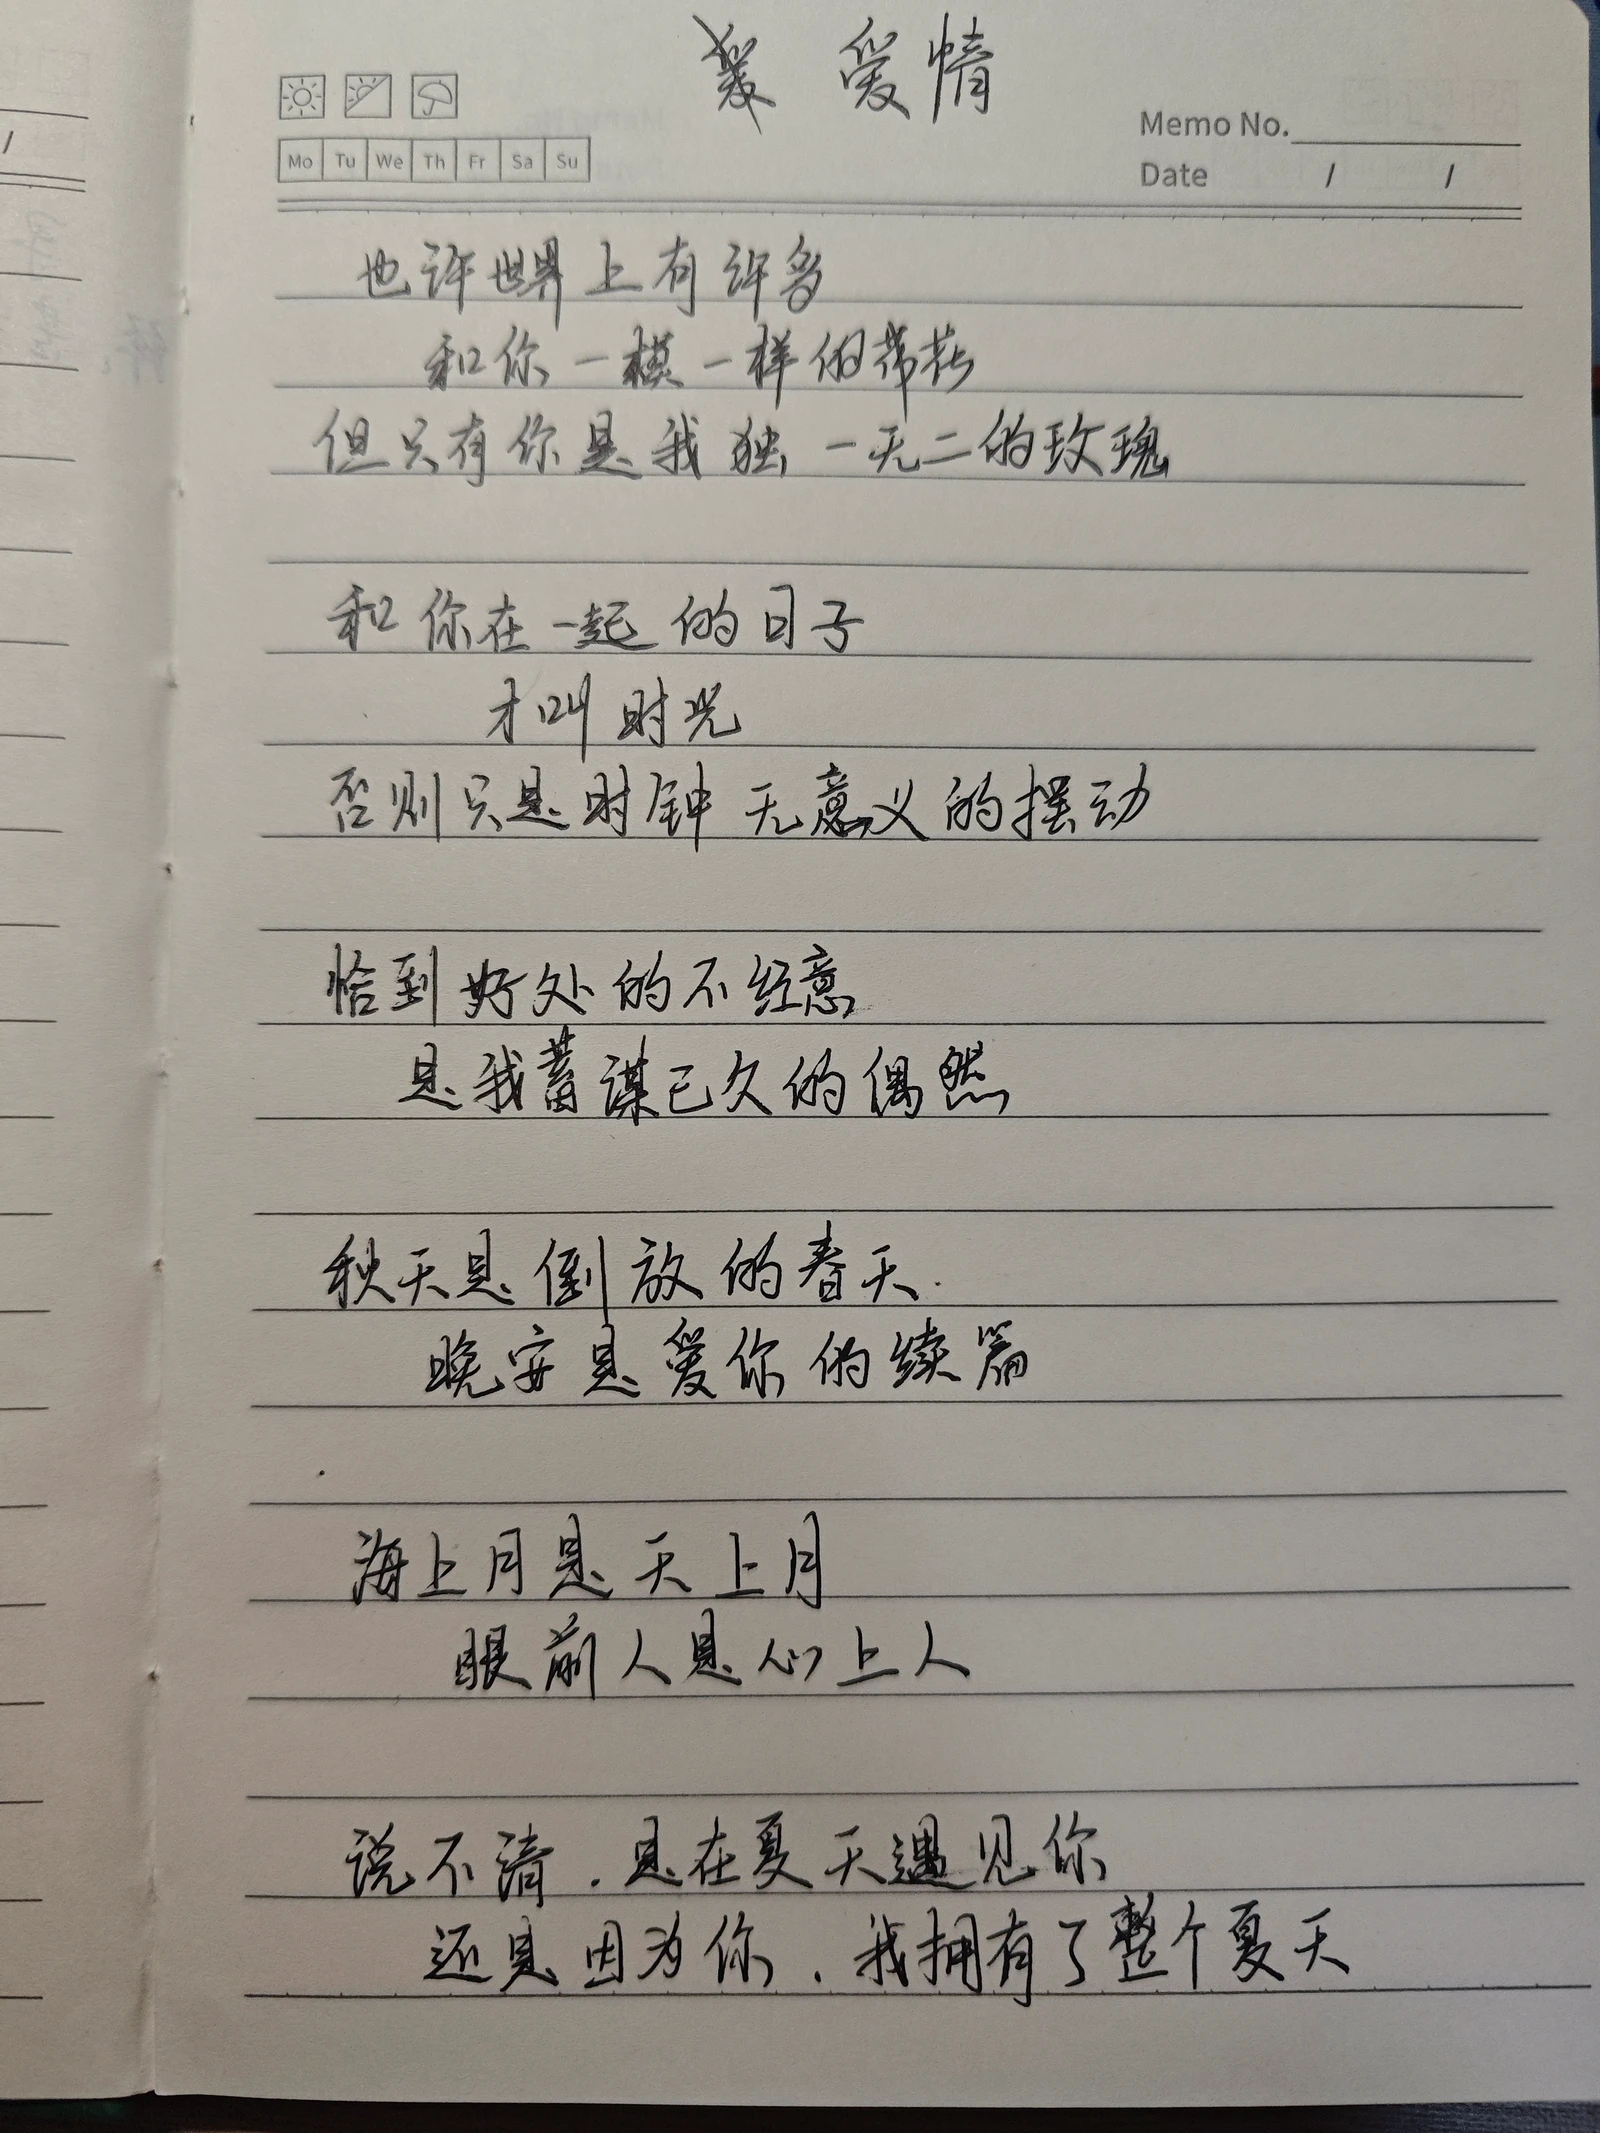 爱情
Memo No.
Mo Tu We Th Fr Sa Su
Date / /
也许世界上有许多
和你一模一样的花
但只有你是我独一无二的玫瑰
和你在一起的日子
才叫时光
否则只是时钟无意义的摆动
恰到好处的不经意
是我蓄谋已久的偶然
秋天是倒放的春天.
晚安是爱你的续篇
海上月是天上月
眼前人是心上人
说不清.是在夏天遇见你
还是因为你.我拥有了整个夏天